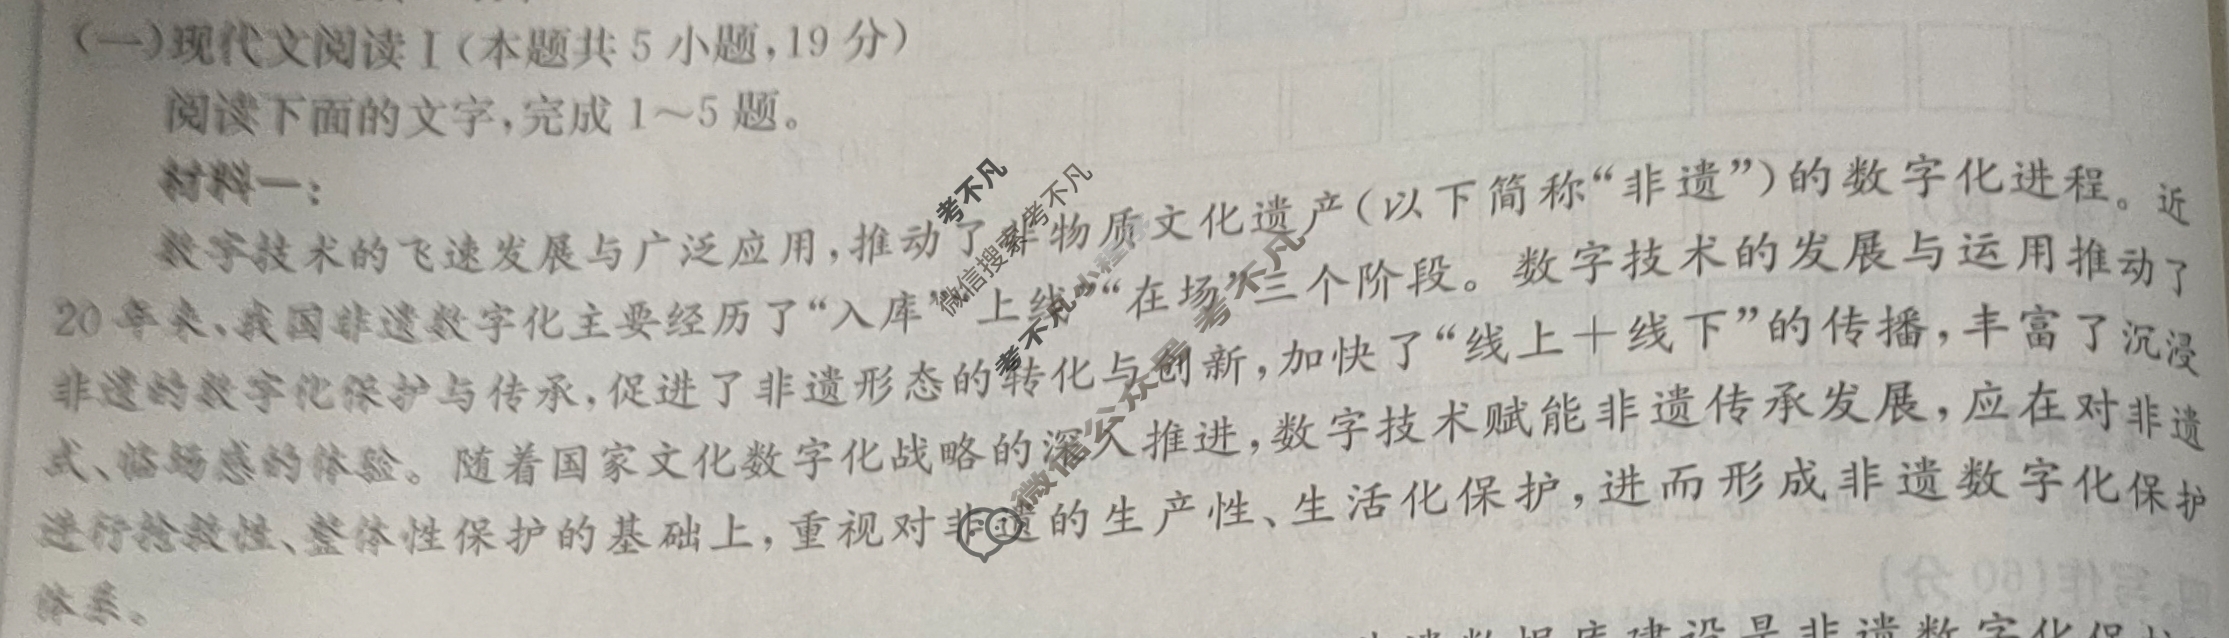 (一)现代文阅读Ⅰ(本题共5小题,19分)
阅读下面的文字,完成1~5题。
材料一:
数字技术的飞速发展与广泛应用,推动了非物质文化遗产(以下简称“非遗”)的数字化进程。近
20年来,我国非遗数字化主要经历了“入库”“上线”“在场”三个阶段。数字技术的发展与运用推动了
非遗的数字化保护与传承,促进了非遗形态的转化与创新,加快了“线上+线下”的传播,丰富了沉浸
式、临场感的体验。随着国家文化数字化战略的深入推进,数字技术赋能非遗传承发展,应在对非遗
进行抢救性、整体性保护的基础上,重视对非遗的生产性、生活化保护,进而形成非遗数字化保护
体系。
非遗数据库建设是非遗数字化保
考不凡
微信搜索考不凡
考不凡小程序
微信公众号 考不凡
四、写作(60分)